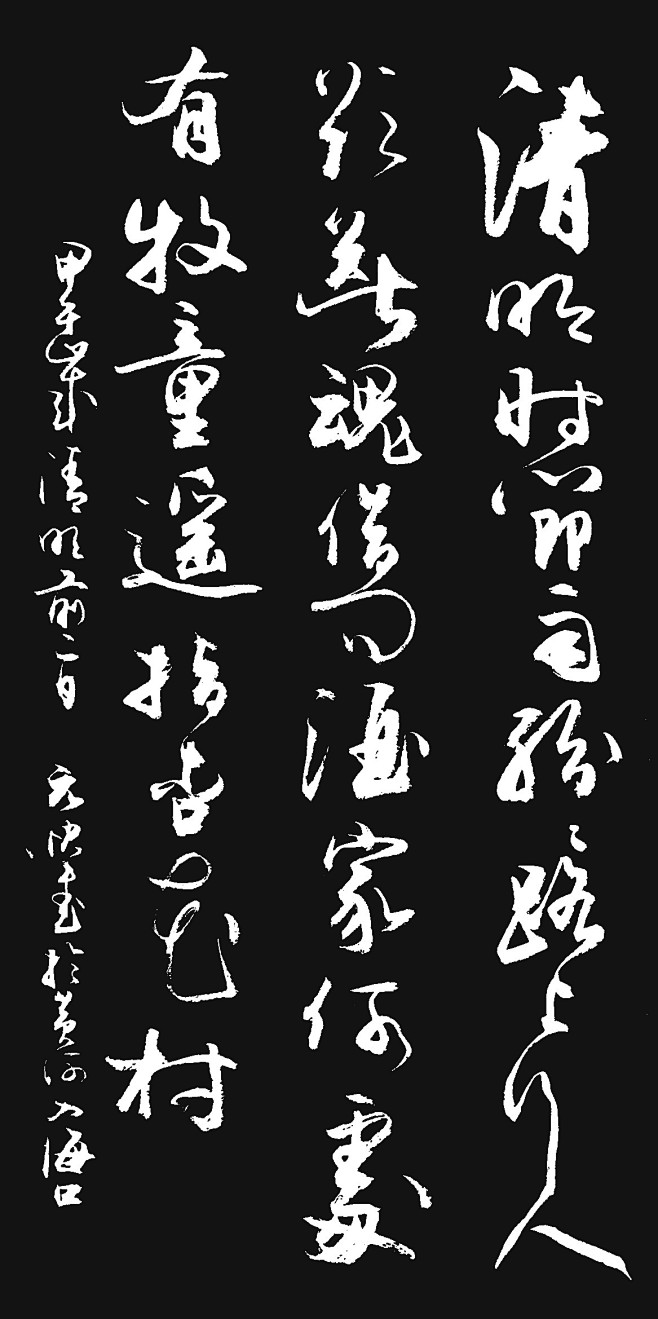 清明时節雨纷々路上行人
欲断魂借问酒家何處
有牧童遥指杏花村
甲午歲清明前二日 书於黄河入海口